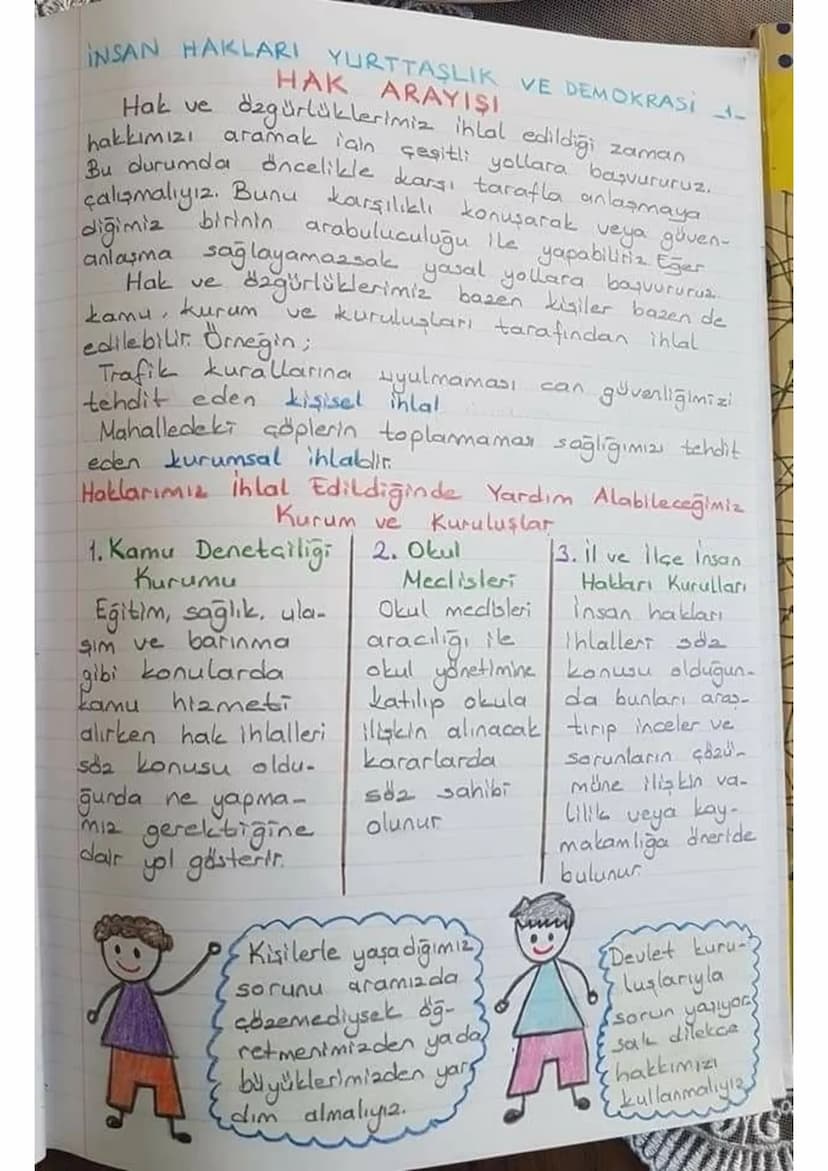 İNSAN HAKLARI YURTTAŞLIK VE DEMOKRASİ -1-
HAK ARAYIŞI
Hak ve özgürlüklerimiz ihlal edildiği zaman
hakkımızı aramak için çeşitli yollara başvururuz.
Bu durumda öncelikle karşı tarafla anlaşmaya
çalışmalıyız. Bunu karşılıklı konuşarak veya güven-
diğimiz birinin arabuluculuğu ile yapabiliriz. Eğer
anlaşma sağlayamazsak yasal yollara başvururuz.
Hak ve özgürlüklerimiz bazen kişiler bazen de
kamu, kurum ve kuruluşları tarafından ihlal
edilebilir. Örneğin;
Trafik kurallarına uyulmaması can güvenliğimizi
tehdit eden kişisel ihlal
Mahalledeki çöplerin toplanmaması sağlığımızı tehdit
eden kurumsal ihlaldir.
Haklarımız İhlal Edildiğinde Yardım Alabileceğimiz
Kurum ve Kuruluşlar
1. Kamu Denetçiliği
Kurumu
Eğitim, sağlık, ula-
şım ve barınma
gibi konularda
kamu hizmeti
alırken hak ihlalleri
söz konusu oldu-
ğunda ne yapma-
mız gerektiğine
dair yol gösterir.
2. Okul
Meclisleri
Okul meclisleri
aracılığı ile
okul yönetimine
katılıp okula
ilişkin alınacak
kararlarda
söz sahibi
olunur
3. İl ve İlçe İnsan
Hakları Kurulları
İnsan hakları
ihlalleri söz
konusu olduğun-
da bunları araş-
tırıp inceler ve
sorunların çözü-
müne ilişkin va-
lilik veya kay-
makamlığa öneride
bulunur.
Kişilerle yaşadığımız
sorunu aramızda
çözemediysek öğ-
retmenimizden ya da
büyüklerimizden yar
dım almalıyız.
Devlet kuru-
luşlarıyla
sorun yaşıyor
sak dilekçe
hakkımızı
kullanmalıyız